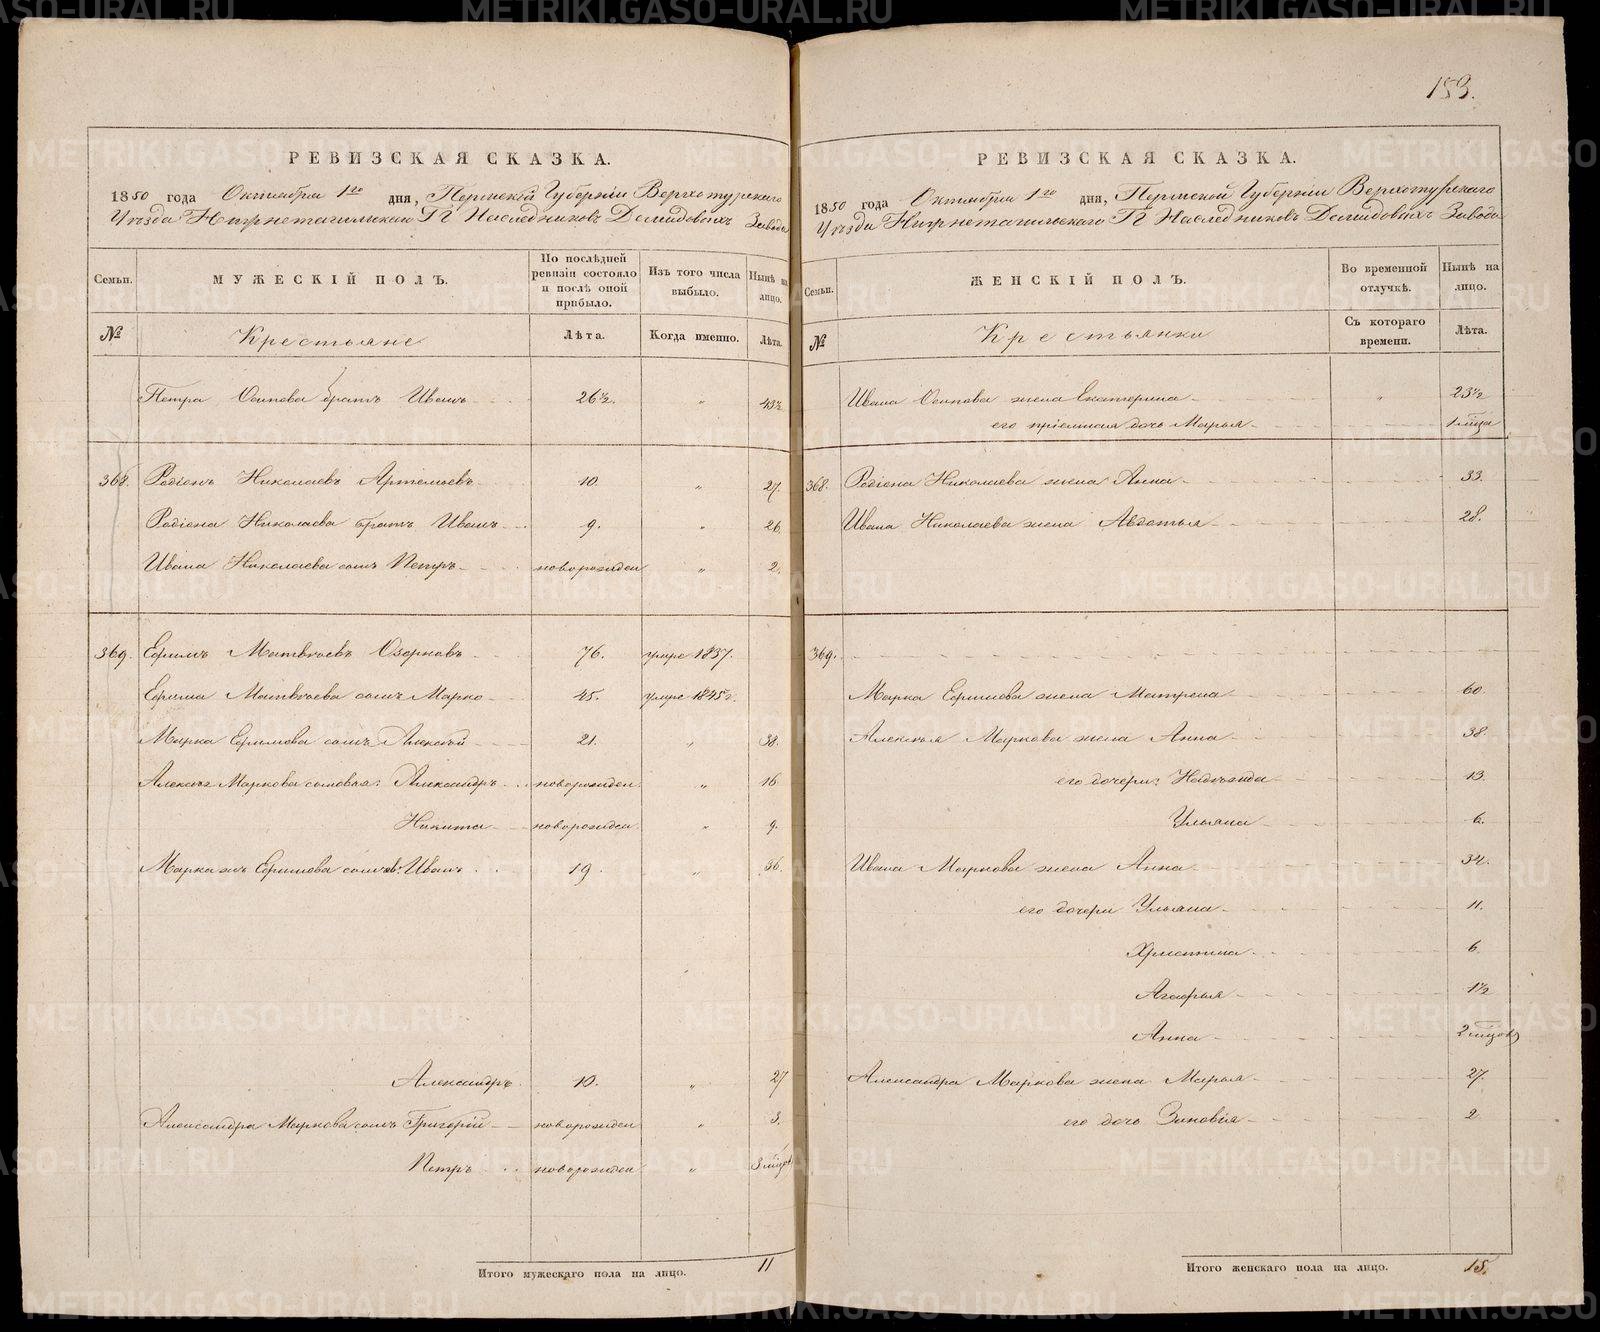 153.
РЕВИЗСКАЯ СКАЗКА.
1850 года Октября 1го дня, Пермской Губернiи Верхотурскаго
Уѣзда Нижнетагильскаго ГГ Наслѣдниковъ Демидовыхъ Завода
Семьи. МУЖЕСКIЙ ПОЛЪ. По послѣдней ревизiи состояло и послѣ оной прибыло. Изъ того числа выбыло. Нынѣ на лицо.
№ Крестьяне Лѣта. Когда именно. Лѣта.
Петра Осипова братъ Иванъ 26½. " 43½
368. Родiонъ Николаевъ Артемьевъ 10. " 27.
Родiона Николаева братъ Иванъ 9. " 26.
Ивана Николаева сынъ Петръ новорожден " 2.
369. Ефимъ Матвѣевъ Озерковъ 76. умре 1837.
Ефима Матвѣева сынъ Марко 45. умре 1845 г.
Марка Ефимова сынъ Алексѣй 21. " 38.
Алексѣя Маркова сыновья: Александръ новорожден " 16
Никита новорожден " 9.
Марка жъ Ефимова сынов: Иванъ 19. " 36.
Александръ 10. " 27
Александра Маркова сынъ Григорiй новорожден " 3.
Петръ новорожден " 3 мѣсяц
Итого мужескаго пола на лицо. 11
РЕВИЗСКАЯ СКАЗКА.
1850 года Октября 1го дня, Пермской Губернiи Верхотурскаго
Уѣзда Нижнетагильскаго ГГ Наслѣдниковъ Демидовыхъ Завода
Семьи. ЖЕНСКIЙ ПОЛЪ. Во временной отлучкѣ. Нынѣ на лицо.
№ Крестьянки Съ котораго времени. Лѣта.
Ивана Осипова жена Екатерина " 23½
его прiемная дочь Марья 1 мѣсяца
368. Родiона Николаева жена Анна 33.
Ивана Николаева жена Авдотья 28.
369.
Марка Ефимова жена Матрена 60.
Алексѣя Маркова жена Анна 38.
его дочери: Надѣжда 13.
Ульяна 6.
Ивана Маркова жена Анна 34.
его дочери Ульяна 11.
Христина 6.
Агафья 1½
Анна 2 мѣсяцов
Александра Маркова жена Марья 27.
его дочь Зиновiя 2.
Итого женскаго пола на лицо. 15.